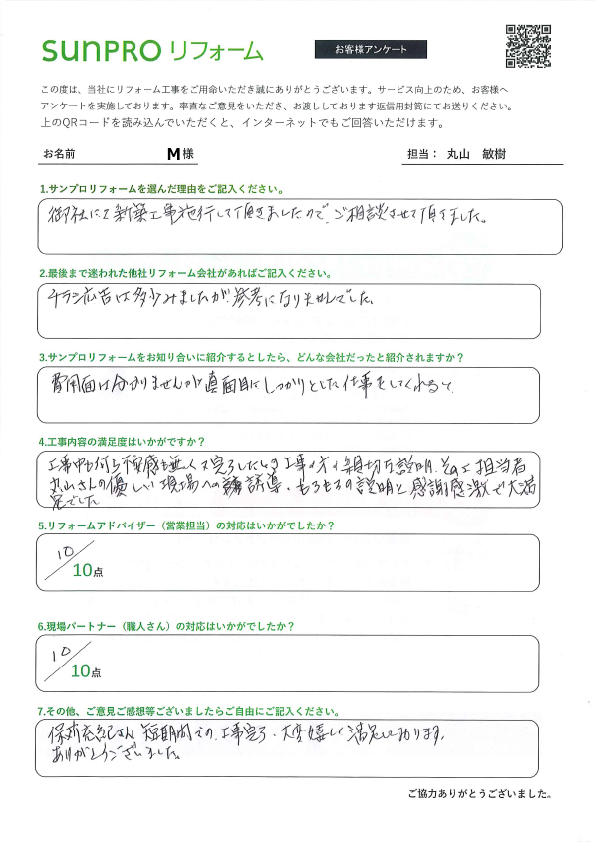 SUNPRO リフォーム
お客様アンケート
この度は、当社にリフォーム工事をご用命いただき誠にありがとうございます。サービス向上のため、お客様へ
アンケートを実施しております。率直なご意見をいただき、お渡ししております返信用封筒にてお送りください。
上のQRコードを読み込んでいただくと、インターネットでもご回答いただけます。
お名前 M様 担当： 丸山 敏樹
1.サンプロリフォームを選んだ理由をご記入ください。
御社にて新築工事施行して頂きましたので、ご相談させて頂きました。
2.最後まで迷われた他社リフォーム会社があればご記入ください。
チラシ広告は多少みましたが、参考になりませんでした。
3.サンプロリフォームをお知り合いに紹介するとしたら、どんな会社だったと紹介されますか？
費用面は分かりませんが真面目にしっかりとした仕事をしてくれると、
4.工事内容の満足度はいかがですか？
工事中も何ら不感も無く完了したし、工事の方の親切な説明、その上担当者
丸山さんの優しい現場への誘導、もろもろの説明と感謝感激で大満
足でした
5.リフォームアドバイザー（営業担当）の対応はいかがでしたか？
10
10点
6.現場パートナー（職人さん）の対応はいかがでしたか？
10
10点
7.その他、ご意見ご感想等ございましたらご自由にご記入ください。
短期間での、工事完了、大変嬉しく満足しております。
ありがとうございました。
ご協力ありがとうございました。